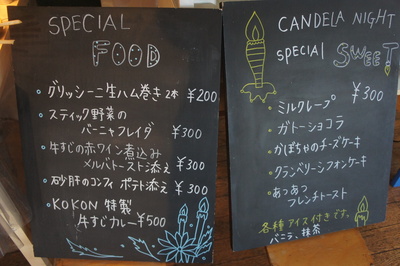 SPECIAL
FOOD
・グリッシーニ生ハム巻き 2本 ¥200
・スティック野菜の
バーニャフレイダ ¥300
・牛すじの赤ワイン煮込み
メルバトースト添え ¥300
・砂肝のコンフィ ポテト添え ¥300
・KOKON 特製
牛すじカレー ¥500
CANDELA NIGHT
SPECIAL SWEET
¥300
・ミルクレープ
・ガトーショコラ
・かぼちゃのチーズケーキ
・クランベリーシフォンケーキ
・あつあつ
フレンチトースト
各種アイス付きです。
バニラ、抹茶